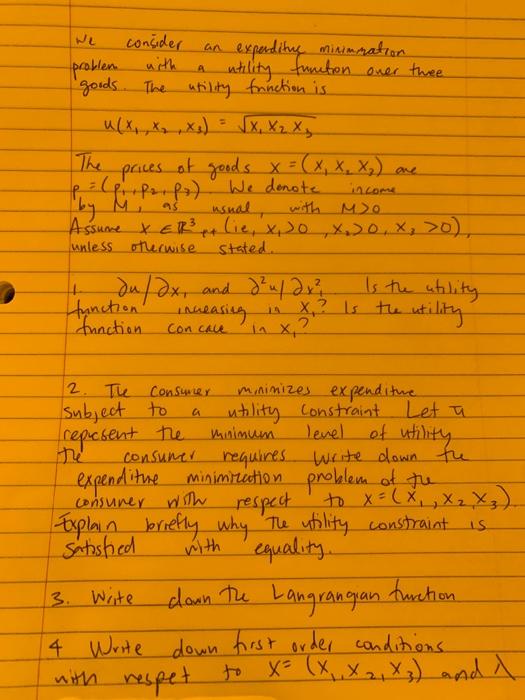 We consider an expenditure minimization
problem with a utility function over three
goods. The utility function is
u(x₁, x₂, x₃) = √x₁ x₂ x₃
The prices of goods x = (x₁ x₂ x₃) are
p = (p₁, p₂, p₃). We denote income
by M, as usual, with M>0
Assume x ∈ ℝ³₊₊ (ie, x₁>0, x₂>0, x₃>0),
unless otherwise stated.
1. ∂u/∂x₁ and ∂²u/∂x₁². Is the utility
function increasing in x₁? Is the utility
function concave in x₁?
2. The consumer minimizes expenditure
subject to a utility constraint. Let ū
represent the minimum level of utility
the consumer requires. Write down the
expenditure minimization problem of the
consumer with respect to x = (x₁, x₂, x₃).
Explain briefly why the utility constraint is
satisfied with equality.
3. Write down the Langrangian function
4 Write down first order conditions
with respet to x = (x₁, x₂, x₃) and λ